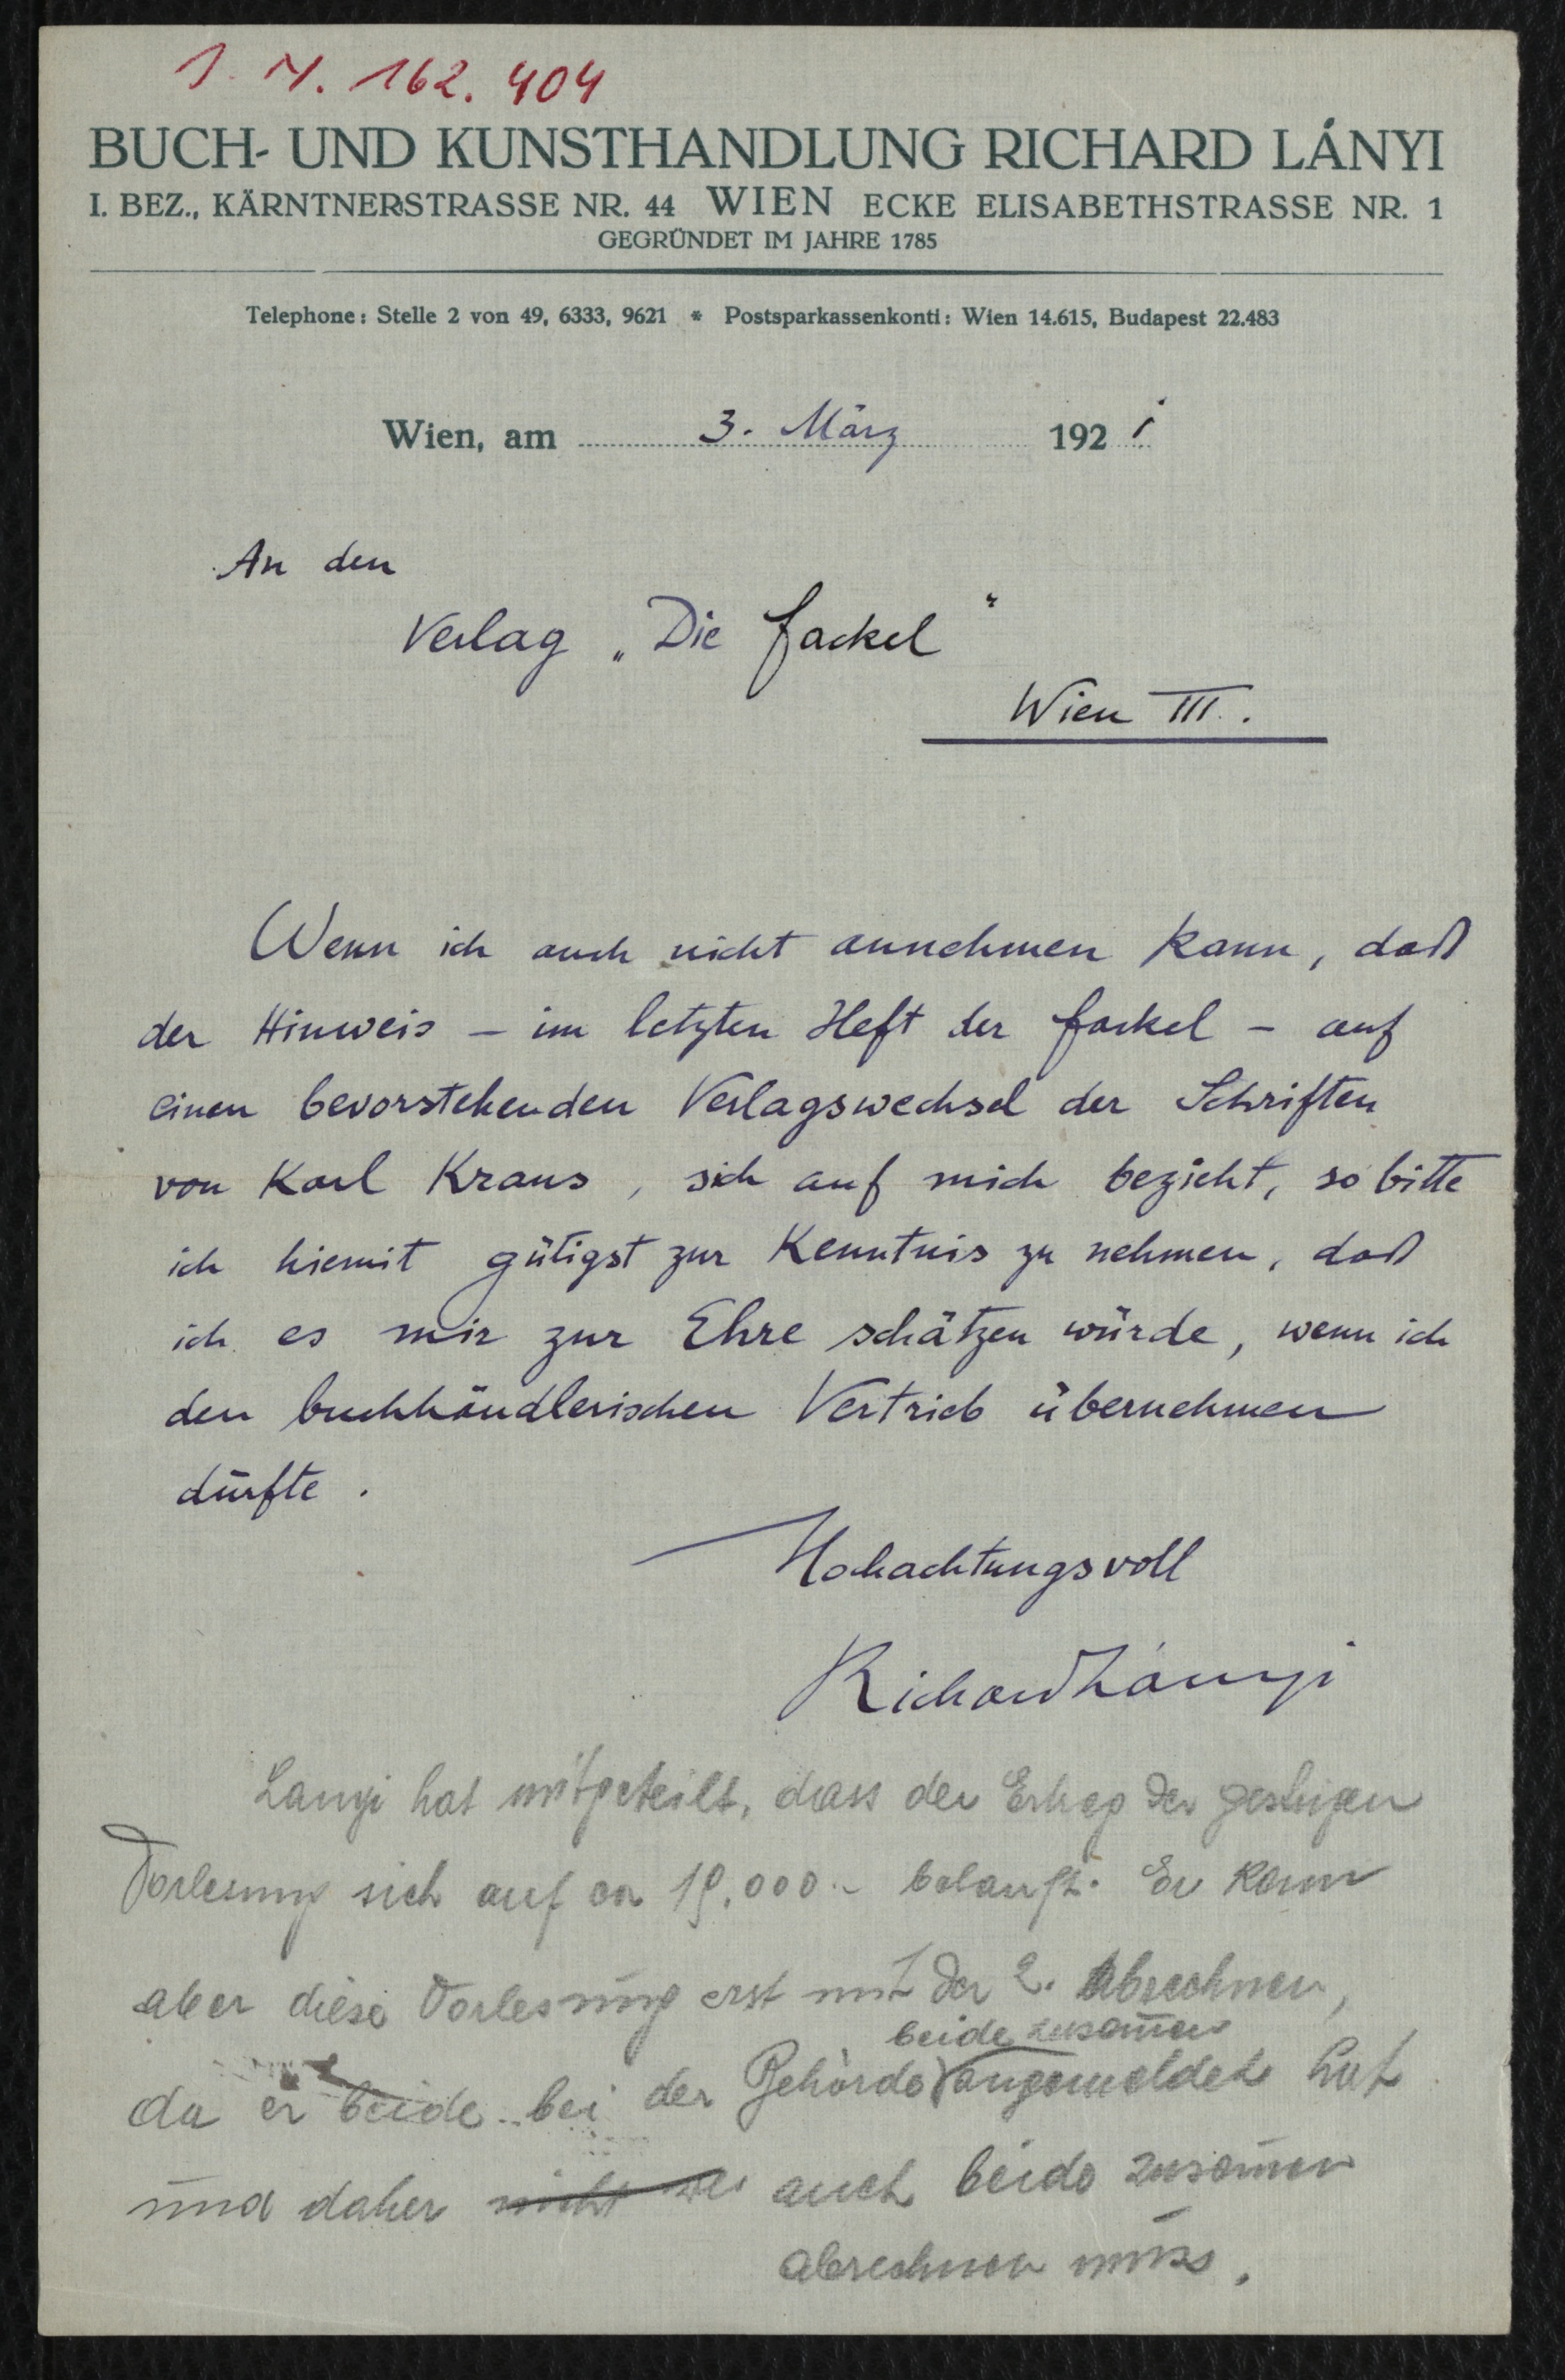 I. N. 162.404
BUCH- UND KUNSTHANDLUNG RICHARD LÁNYI
I. BEZ., KÄRNTNERSTRASSE NR. 44 WIEN ECKE ELISABETHSTRASSE NR. 1
GEGRÜNDET IM JAHRE 1785
Telephone: Stelle 2 von 49, 6333, 9621 * Postsparkassenkonti: Wien 14.615, Budapest 22.483
Wien, am 3. März 1921
An den
Verlag „Die Fackel“
Wien III.
Wenn ich auch nicht annehmen kann, daß
der Hinweis – im letzten Heft der Fackel – auf
einen bevorstehenden Verlagswechsel der Schriften
von Karl Kraus, sich auf mich bezieht, so bitte
ich hiemit gütigst zur Kenntnis zu nehmen, daß
ich es mir zur Ehre schätzen würde, wenn ich
den buchhändlerischen Vertrieb übernehmen
dürfte.
Hochachtungsvoll
Richard Lányi
Lanyi hat mitgeteilt, dass der Ertrag der gestrigen
Vorlesung sich auf ca 19.000.- belauft. Er kann
aber diese Vorlesung erst mit der 2. abrechnen,
beide zusam̄en
da er beide bei der Behörde angemeldet hat
und daher nicht auch beide zusam̄en
abrechnen muss.